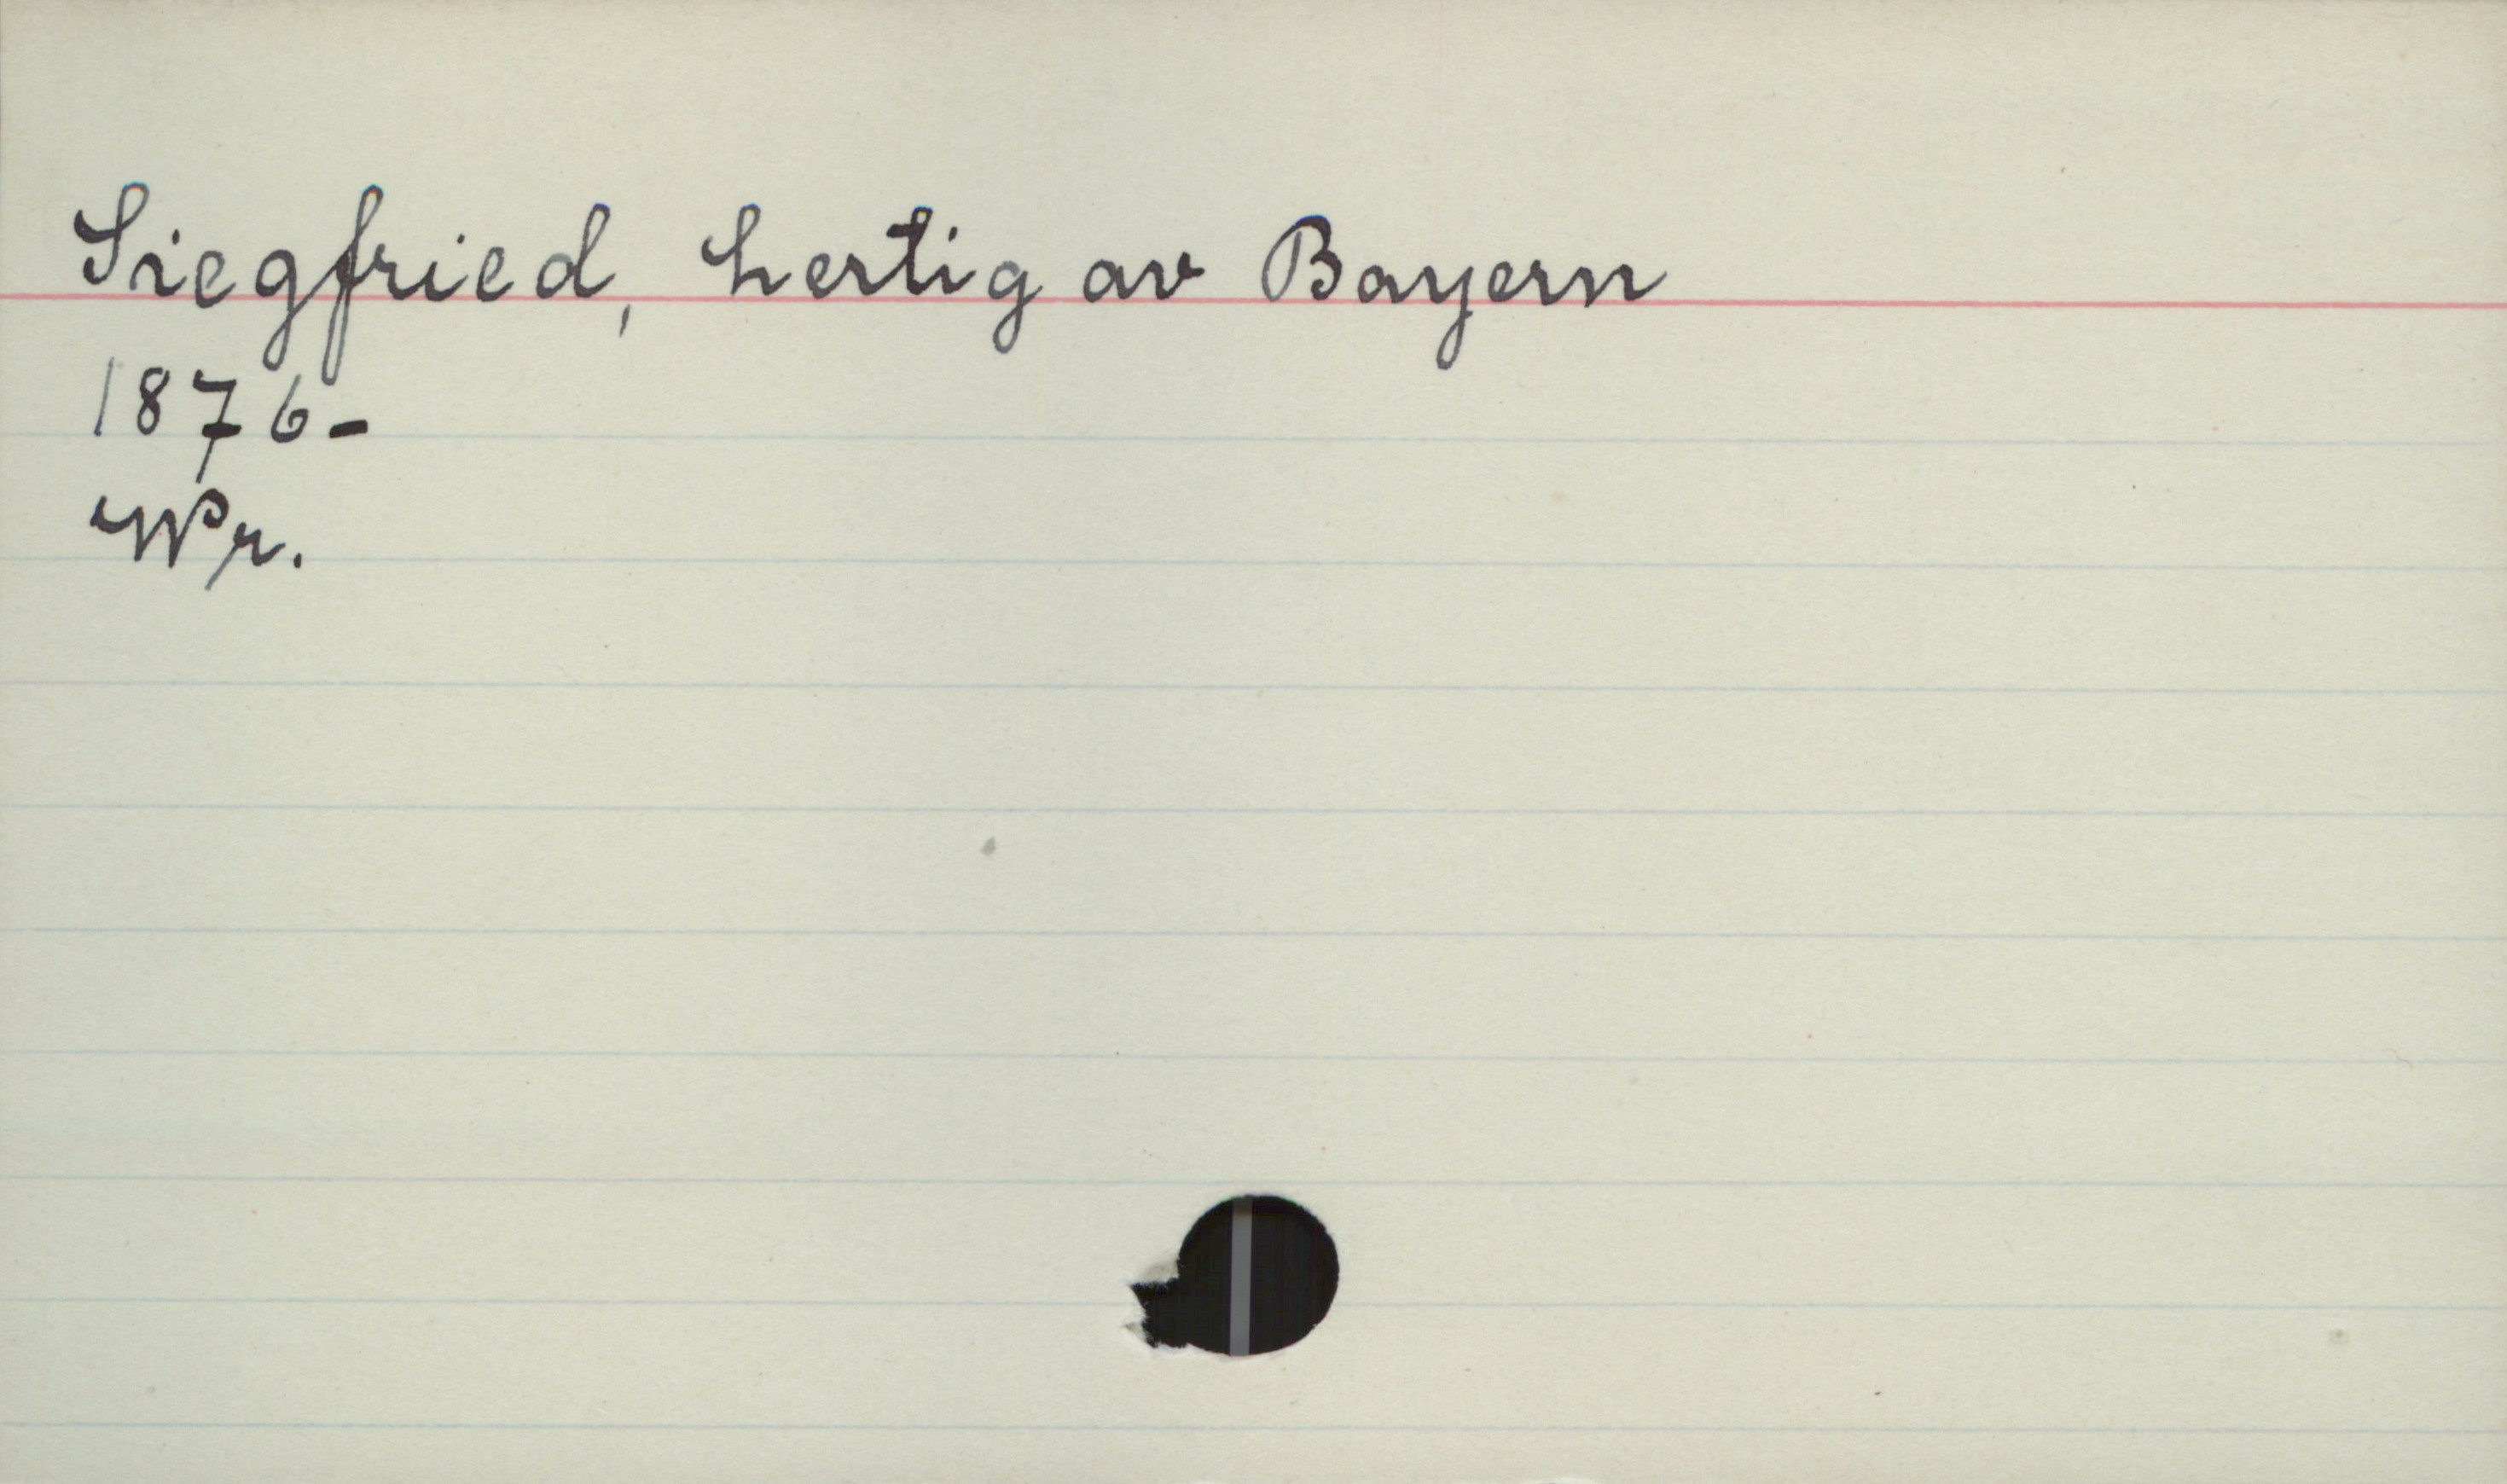 Siegfried, hertig av Bayern
1876-
Wr.